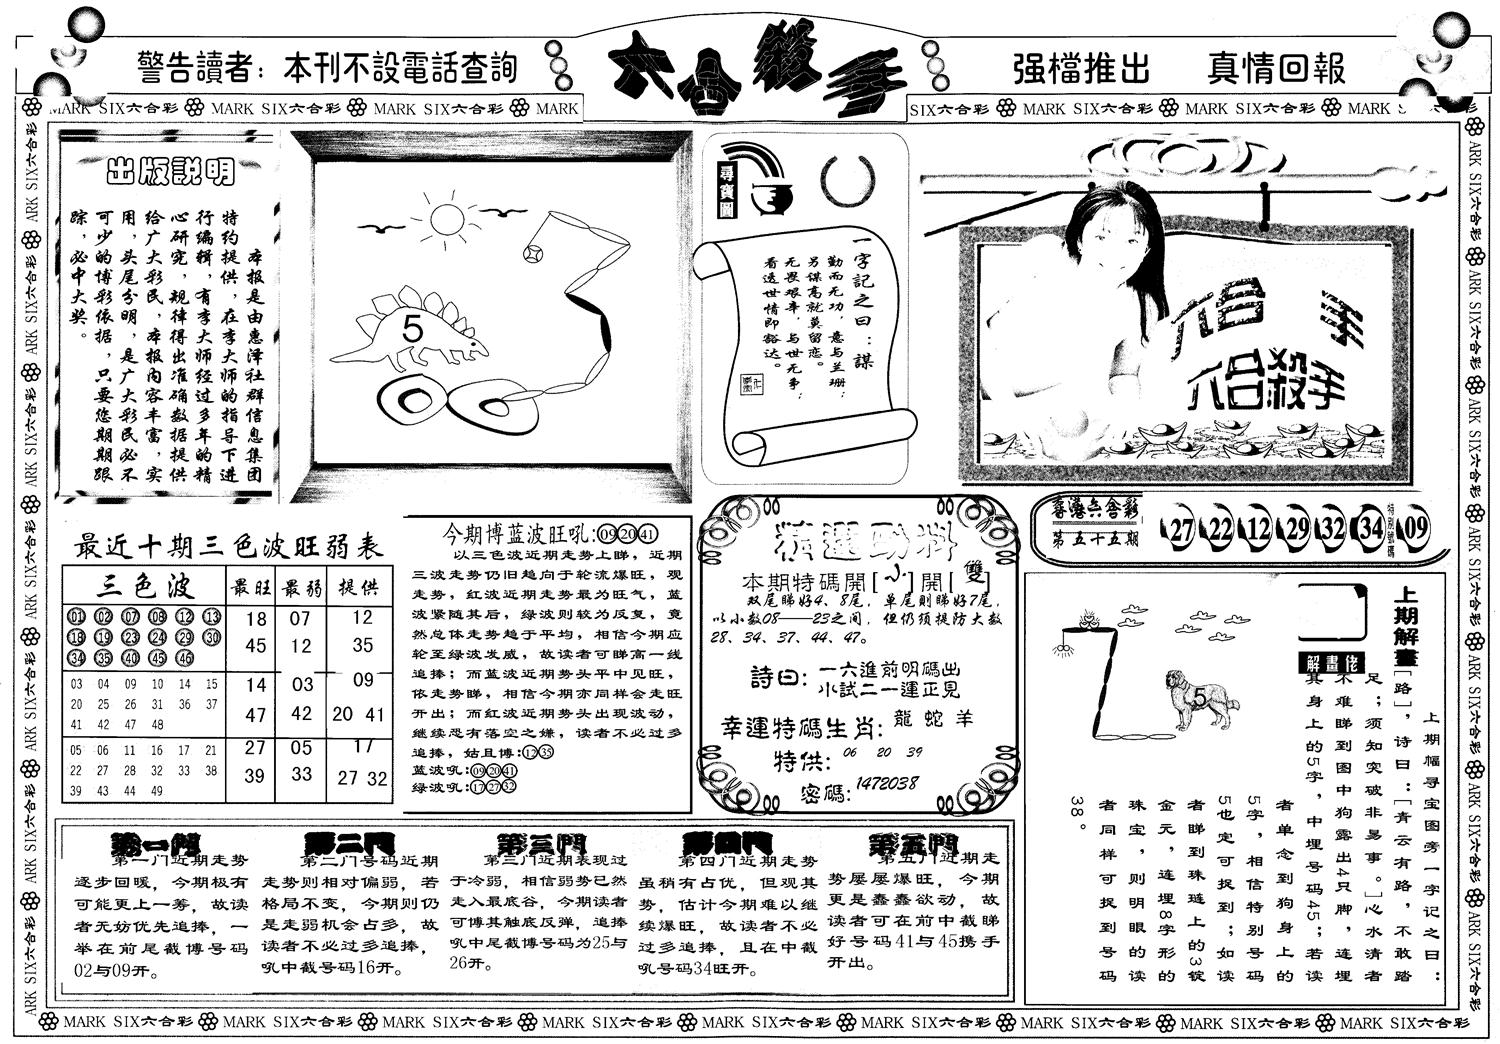 警告讀者：本刊不設電話查詢
六合殺手
强檔推出 真情回報
MARK SIX六合彩 MARK SIX六合彩 MARK SIX六合彩 MARK
SIX六合彩 MARK SIX六合彩 MARK SIX六合彩 MARK
出版説明
本报是由惠泽社群信息集团
特约提供，在李大师的指导下进
行编辑，有李大师经过多年的精
心研究，规律得出准确数据提供
给广大彩民，本报内容丰富，实
用，头尾分明，是广大彩民必不
可少的博彩依据，只要您期期跟
踪，必中大奖。
5
尋寶圖
一字記之曰：謀
勤而无功，意与兰珊；
另谋高就莫留恋。
无畏艰辛，与世无争；
看透世情即豁达。
六合 手
六合殺手
香港六合彩
第五十五期
27 22 12 29 32 34 特別號碼 09
最近十期三色波旺弱表
三色波 最旺 最弱 提供
01 02 07 08 12 13
18 19 23 24 29 30
34 35 40 45 46
18 07 12
45 12 35
03 04 09 10 14 15
20 25 26 31 36 37
41 42 47 48
14 03 09
47 42 20 41
05 06 11 16 17 21
22 27 28 32 33 38
39 43 44 49
27 05 17
39 33 27 32
今期博蓝波旺吼:09 20 41
以三色波近期走势上睇，近期
三波走势仍旧趋向于轮流爆旺，观
走势，红波近期走势最为旺气，蓝
波紧随其后，绿波则较为反复，竟
然总体走势趋于平均，相信今期应
轮至绿波发威，故读者可睇高一线
追捧；而蓝波近期势头平中见旺，
依走势睇，相信今期亦同样会走旺
开出；而红波近期势头出现波动，
继续恐有落空之嫌，读者不必过多
追捧，姑且博:12 35
蓝波吼:09 20 41
绿波吼:17 27 32
精選勁料
本期特碼開[小]開[雙]
双尾睇好4、8尾，单尾则睇好7尾，
以小数08——23之间，但仍须提防大数
28、34、37、44、47。
詩曰：一六進前明碼出
小試二一運正見
幸運特碼生肖：龍 蛇 羊
特供：06 20 39
密碼：1472038
上期解畫
解畫佬
5
上期幅寻宝图旁一字记之曰：
[路]，诗曰：[青云有路，不敢踏
足；须知突破非易事。]心水清者
不难睇到图中狗露出4只脚，连埋
其身上的5字，中埋号码45；若读
者单念到狗身上的
5字，相信特别号码
5也定可捉到；如读
者睇到珠琏上的3锭
金元，连埋8字形的
珠宝，则明眼的读
者同样可捉到号码
38。
第一門
第一门近期走势
逐步回暖，今期极有
可能更上一筹，故读
者无妨优先追捧，一
举在前尾截博号码
02与09开。
第二門
第二门号码近期
走势则相对偏弱，若
格局不变，今期则仍
是走弱机会占多，故
读者不必过多追捧，
吼中截号码16开。
第三門
第三门近期表现过
于冷弱，相信弱势已然
走入最底谷，今期读者
可博其触底反弹，追捧
吼中尾截博号码为25与
26开。
第四門
第四门近期走势
虽稍有占优，但观其
势，估计今期难以继
续爆旺，故读者不必
过多追捧，且在中截
吼号码34旺开。
第五門
第五门近期走
势屡屡爆旺，今期
更是蠢蠢欲动，故
读者可在前中截睇
好号码41与45携手
开出。
MARK SIX六合彩 MARK SIX六合彩 MARK SIX六合彩 MARK SIX六合彩 MARK SIX六合彩 MARK SIX六合彩 MARK SIX六合彩 MARK SIX六合彩 MARK SIX六合彩